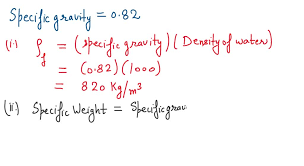 Specific gravity = 0.82
(i) ρf = (specific gravity)(Density of water)
= (0.82)(1000)
= 820 Kg/m³
(ii) Specific Weight = Specific grav